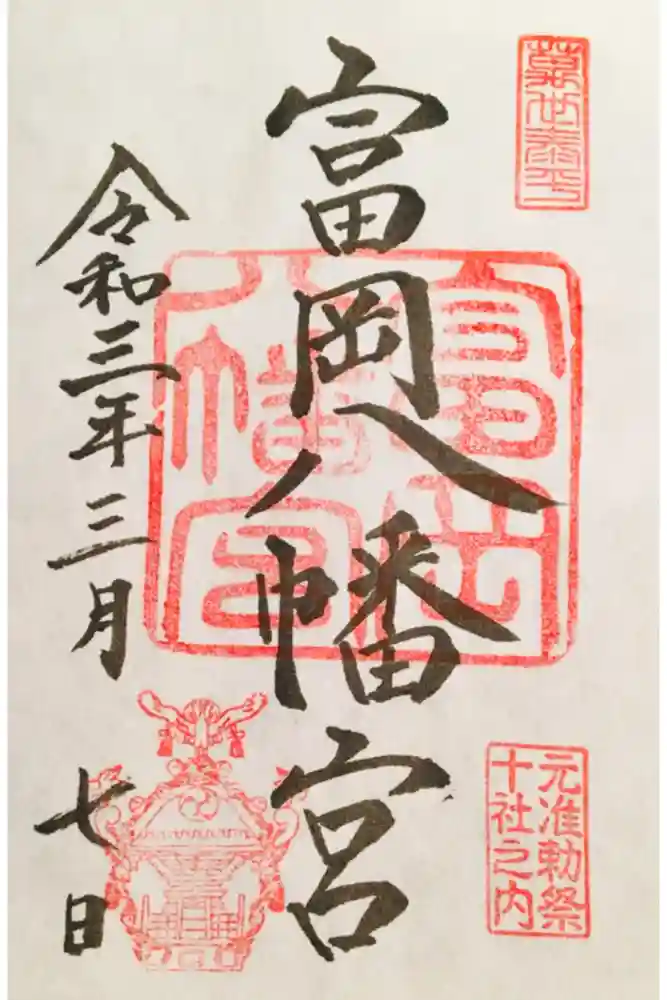 萬世泰平
元准勅祭
十社之内
富岡八幡宮
富岡
八幡宮
令和三年三月七日